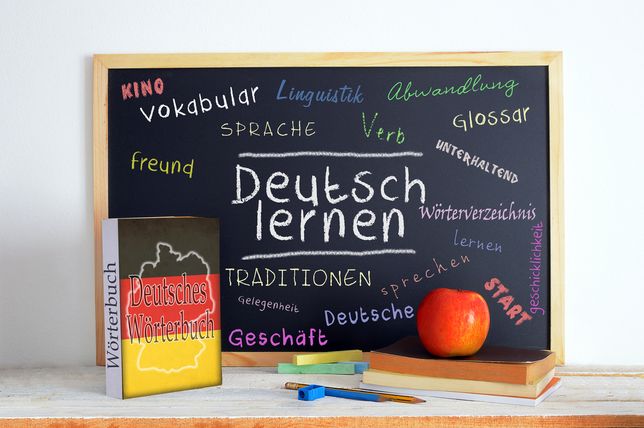 KINO
vokabular
Linguistik
Abwandlung
SPRACHE
Verb
Glossar
freund
UNTERHALTEND
Deutsch
lernen
Wörterverzeichnis
lernen
geschicklichkeit
TRADITIONEN
sprechen
Gelegenheit
Deutsche
START
Geschäft
Wörterbuch
Deutsches
Wörterbuch